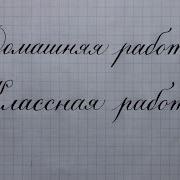 домашняя работ
Классная работ